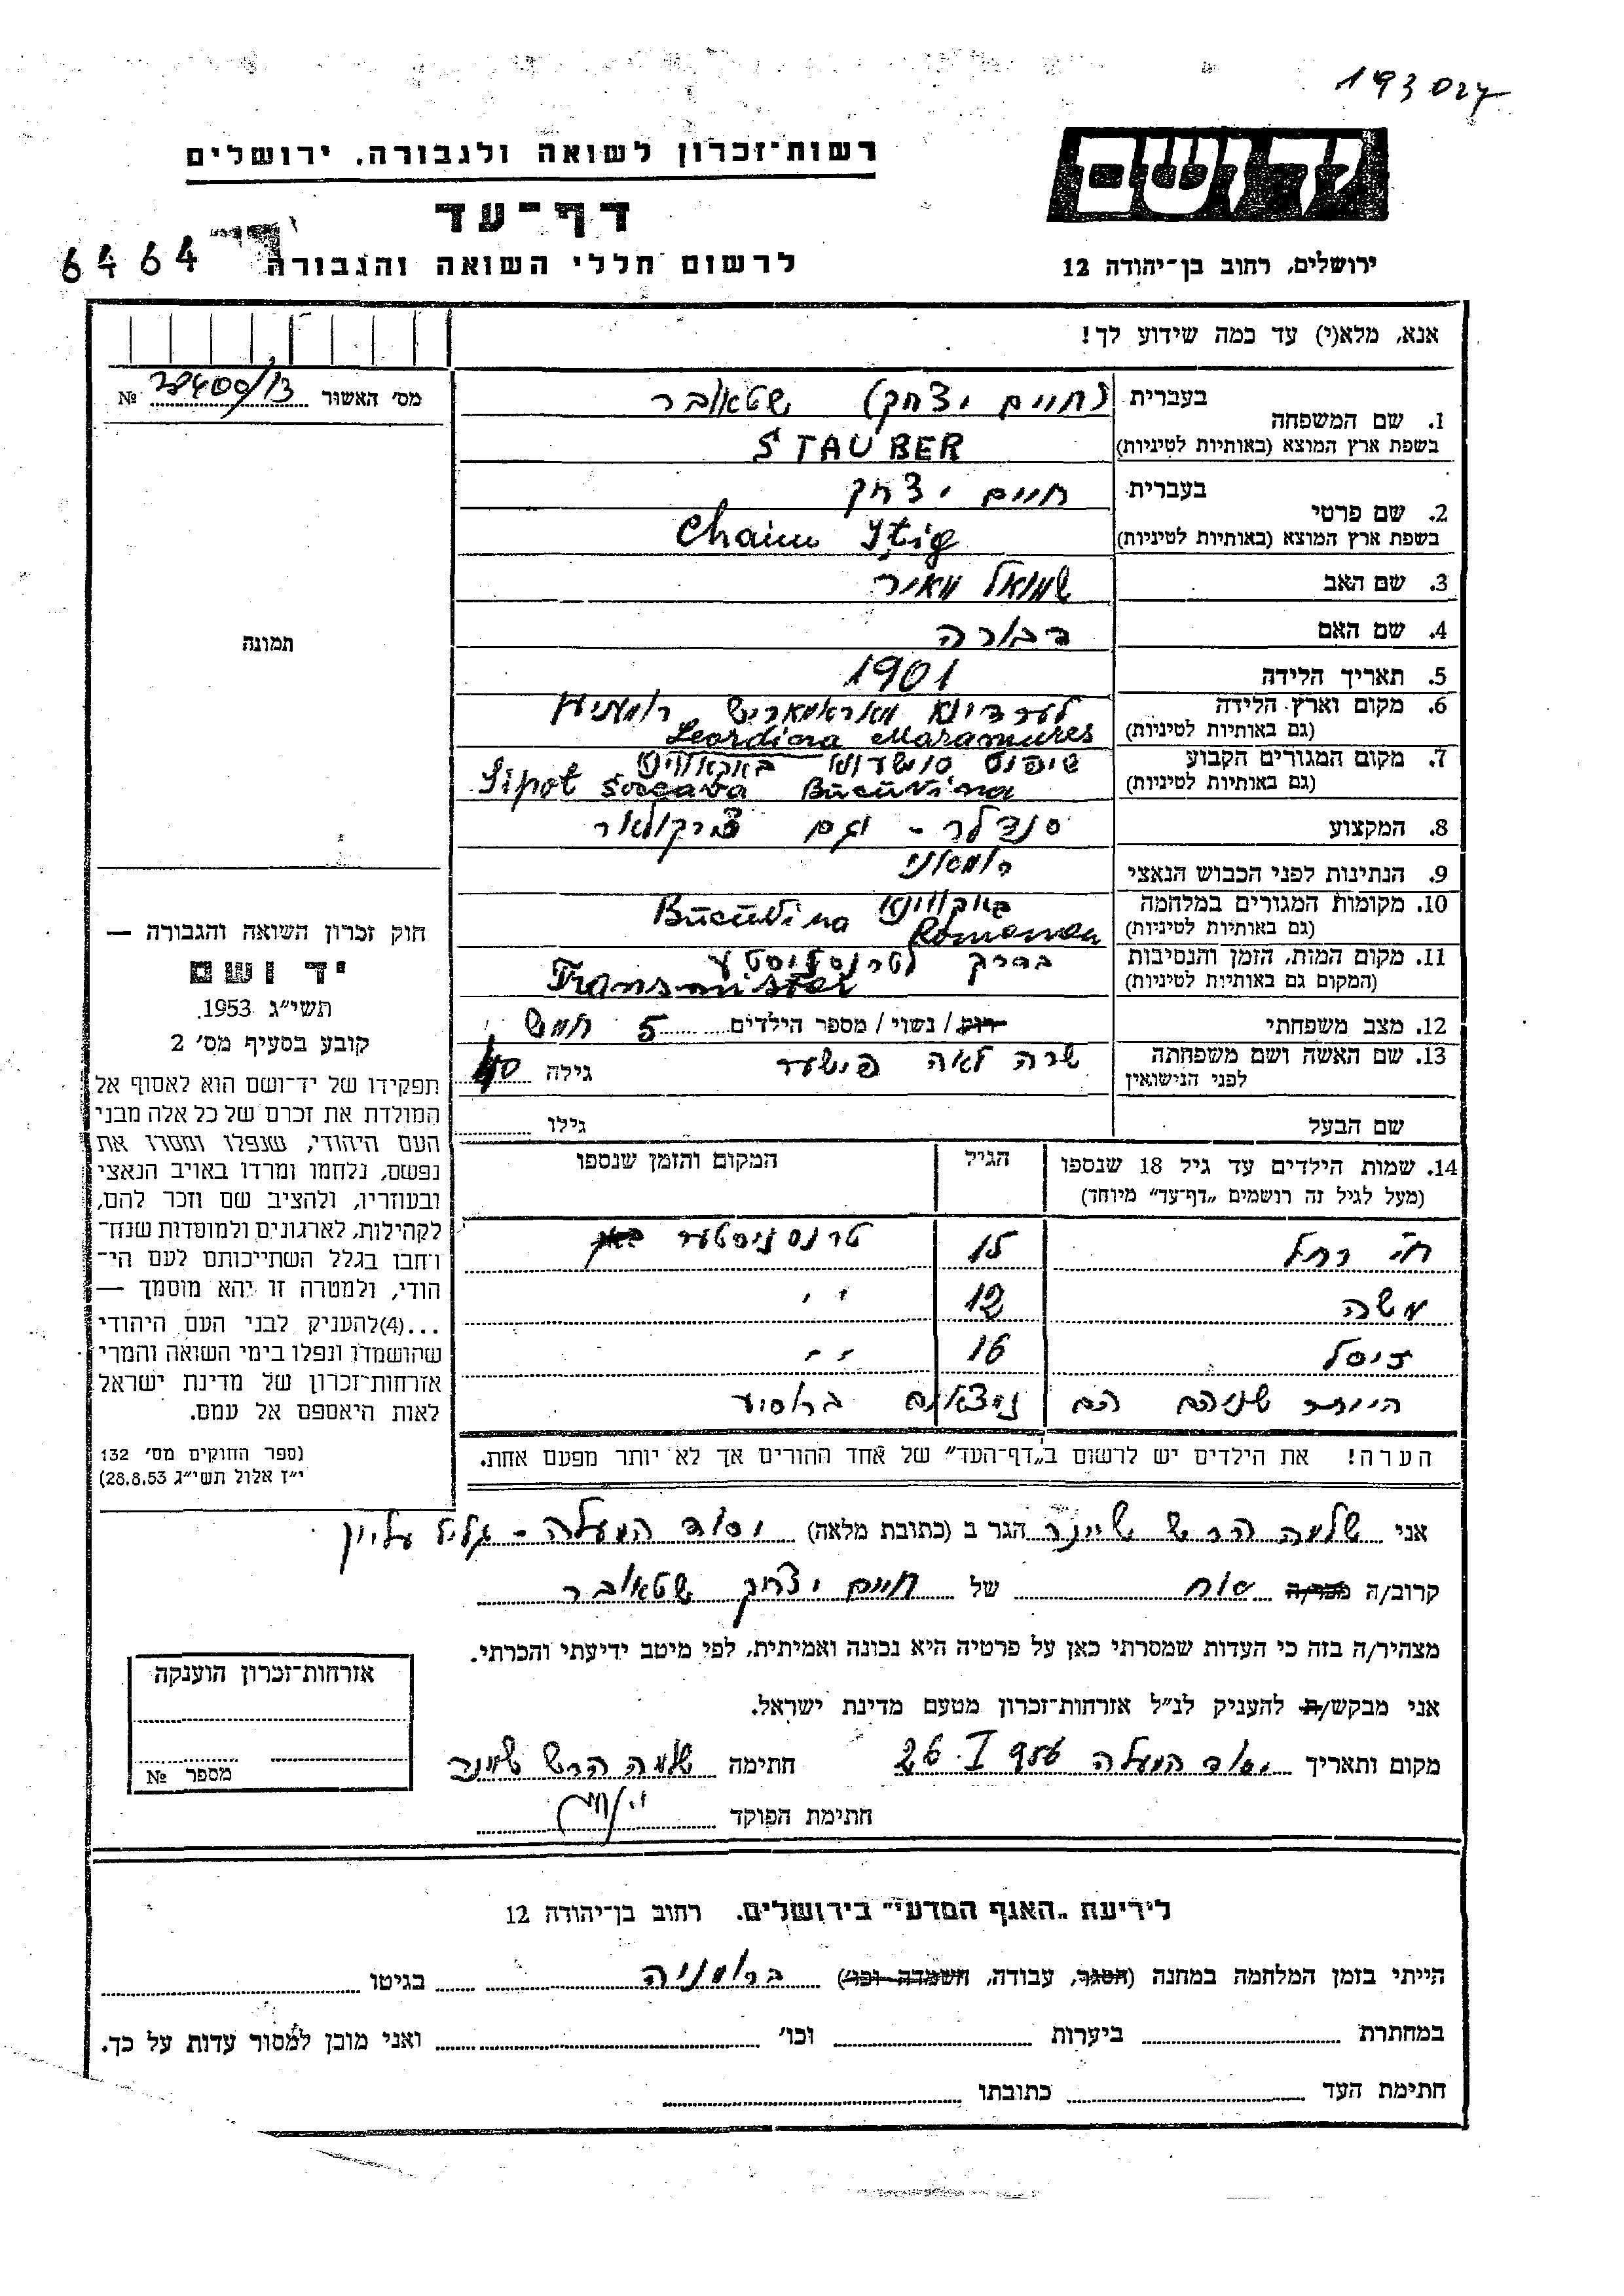 193027
רשות־זכרון לשואה ולגבורה. ירושלים
יד ושם
דף־עד
6464
לרשום חללי השואה והגבורה
ירושלים, רחוב בן־יהודה 12
אנא, מלא(י) עד כמה שידוע לך!
מס' האשור 28400/13 №
תמונה
1. שם המשפחה
בעברית (חיים יצחק) שטאובר
בשפת ארץ המוצא (באותיות לטיניות) STAUBER
2. שם פרטי
בעברית חיים יצחק
בשפת ארץ המוצא (באותיות לטיניות) Chaim Itig
3. שם האב שמואל מאיר
4. שם האם דבורה
5. תאריך הלידה 1901
6. מקום וארץ הלידה
(גם באותיות לטיניות) Leordina Maramures
7. מקום המגורים הקבוע
(גם באותיות לטיניות) Sipot Soceava Bucuvina
8. המקצוע סנדלר - וגם
9. הנתינות לפני הכבוש הנאצי
10. מקומות המגורים במלחמה
(גם באותיות לטיניות) Bucuvina
11. מקום המות, הזמן והנסיבות בדרך
(המקום גם באותיות לטיניות) Transnister
12. מצב משפחתי רוק / נשוי / מספר הילדים 5 חמש
13. שם האשה ושם משפחתה שרה לאה פישער גילה 40
לפני הנישואין
שם הבעל גילו
14. שמות הילדים עד גיל 18 שנספו הגיל המקום והזמן שנספו
(מעל לגיל זה רושמים „דף־עד" מיוחד)
חי' רחל 15 טרנסניסטער
משה 12 ,,
זיסל 16 ,,
היותר שניהם הם נמצאים
הערה! את הילדים יש לרשום ב„דף־העד" של אחד ההורים אך לא יותר מפעם אחת.
חוק זכרון השואה והגבורה —
יד ושם
תשי"ג 1953.
קובע בסעיף מס' 2
תפקידו של יד־ושם הוא לאסוף אל
המולדת את זכרם של כל אלה מבני
העם היהודי, שנפלו ומסרו את
נפשם, נלחמו ומרדו באויב הנאצי
ובעוזריו, ולהציב שם וזכר להם,
לקהילות, לארגונים ולמוסדות שנח־
רחבו בגלל השתייכותם לעם הי־
הודי, ולמטרה זו יהא מוסמך —
...(4)להעניק לבני העם היהודי
שהושמדו ונפלו בימי השואה והמרי
אזרחות־זכרון של מדינת ישראל
לאות היאספם אל עמם.
(ספר החוקים מס' 132
י"ז אלול תשי"ג 28.8.53)
אני שלמה הרש שיינר הגר ב (כתובת מלאה) יסוד המעלה - גליל עליון
קרוב/ה מכר/ה של חיים יצחק שטאובר
מצהיר/ה בזה כי העדות שמסרתי כאן על פרטיה היא נכונה ואמיתית, לפי מיטב ידיעתי והכרתי.
אני מבקש/ת להעניק לנ"ל אזרחות־זכרון מטעם מדינת ישראל.
מקום ותאריך יסוד המעלה 26.I 956 חתימה שלמה הרש שיינר
חתימת הפוקד
אזרחות־זכרון הוענקה
מספר №
לידיעת „האגף המדעי" בירושלים. רחוב בן־יהודה 12
הייתי בזמן המלחמה במחנה (הסגר, עבודה, השמדה וכו') ברומניה בגיטו
במחתרת ביערות וכו' ואני מוכן למסור עדות על כך.
חתימת העד כתובתו